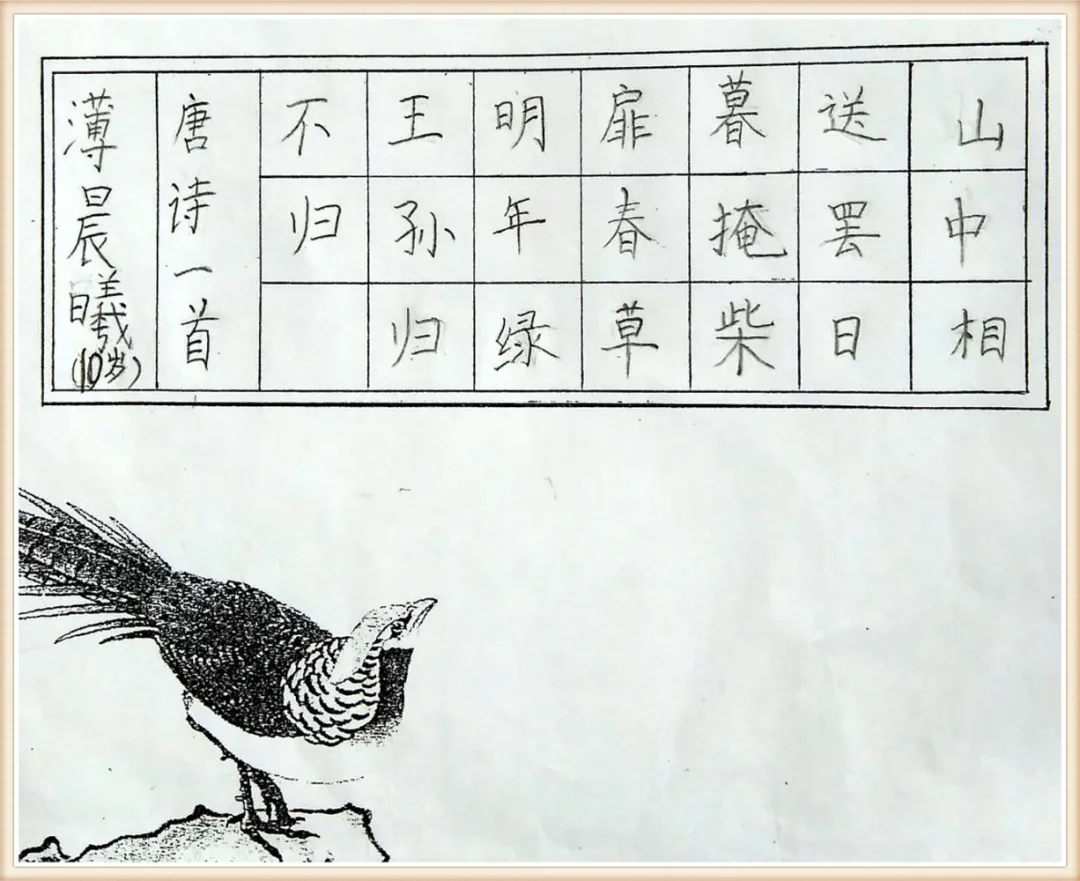 山中相
送罢日
暮掩柴
扉春草
明年绿
王孙归
不归
唐诗一首
薄晨曦(10岁)